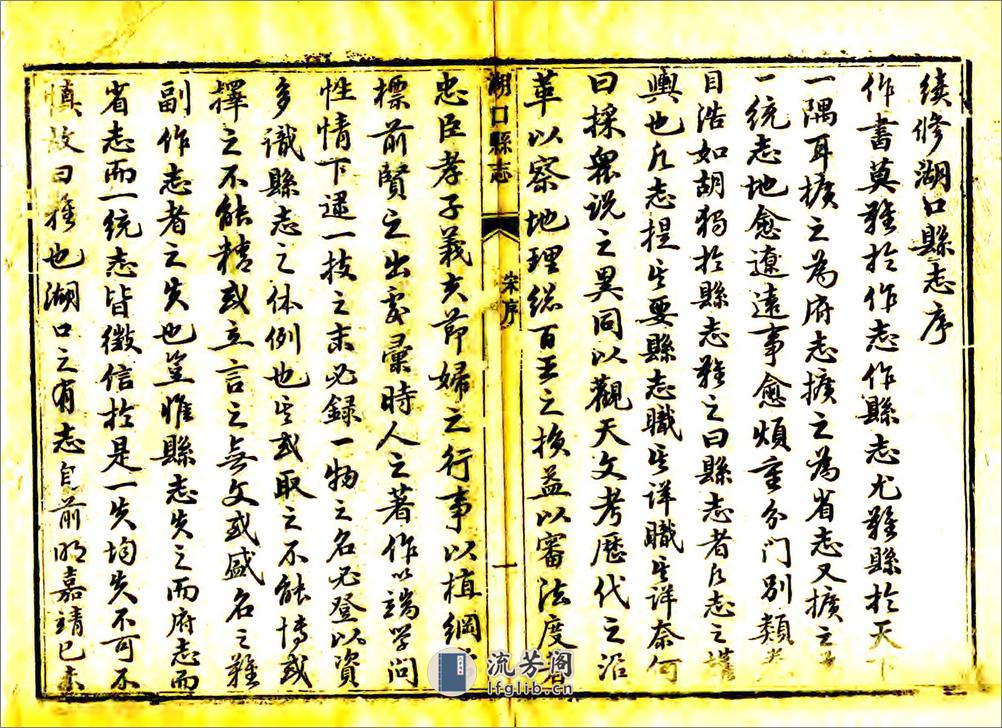 续修湖口縣志序
作書莫難於作志作縣志尤難縣於天下
一隅耳擴之為府志擴之為省志又擴之為
一統志地愈遼遠事愈煩重分門別類
目浩如胡獨於縣志難之曰縣志者凡志之
輿也凡志提其要縣志職其詳職其詳奈何
曰採眾說之異同以觀天文考歷代之沿
革以察地理總百王之損益以審法度
湖口縣志
宋序
一
忠臣孝子義夫節婦之行事以植綱
標前賢之出處彙時人之著作以端學問
性情下逮一技之末必録一物之名必登以資
多識縣志之体例也其或取之不能博或
擇之不能精或立言之無文或盛名之難
副作志者之失也豈惟縣志失之而府志而
省志而一統志皆徵信於是一失均失不可不
慎故曰難也湖口之有志自前明嘉靖已未
流芳阁
lfglib.cn